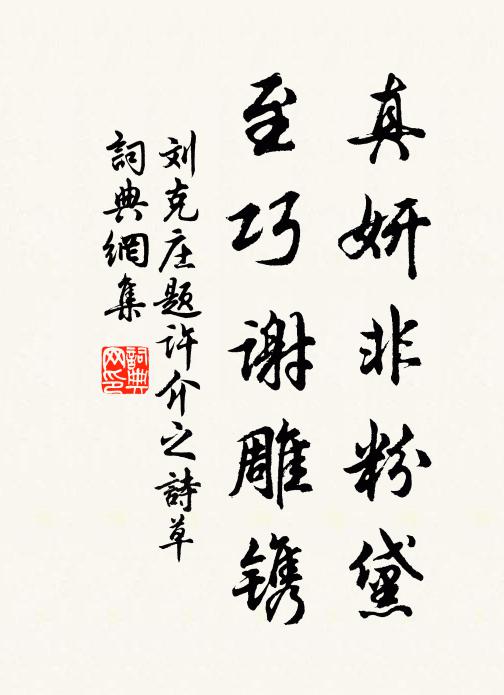 真妍非粉黛
至巧谢雕镌
刘克庄题许介之詩草
詞典網集
詞典
网印